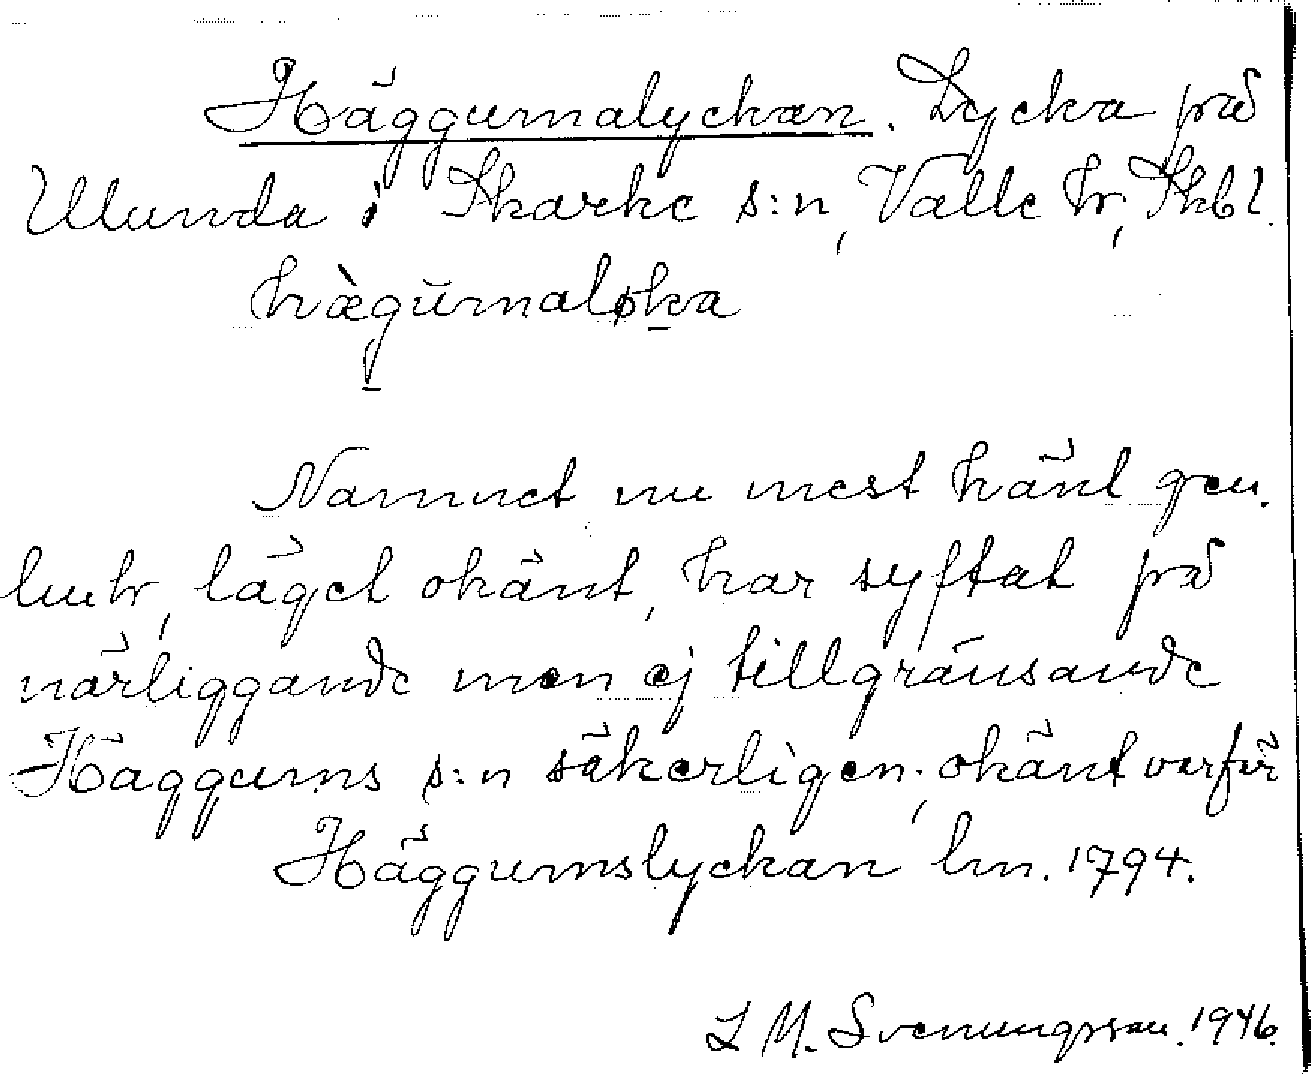 Häggumalyckan. Lycka på
Ulunda i Skarke s:n, Valle hr, Skbl.
hæ̀gŭmaløka
Namnet nu mest känt gen.
luhr, läget okänt, har syftat på
närliggande men ej tillgränsande
Häggums s:n säkerligen; okänt varför
Häggumslyckan lm. 1794.
L M. Svenungsson. 1946.